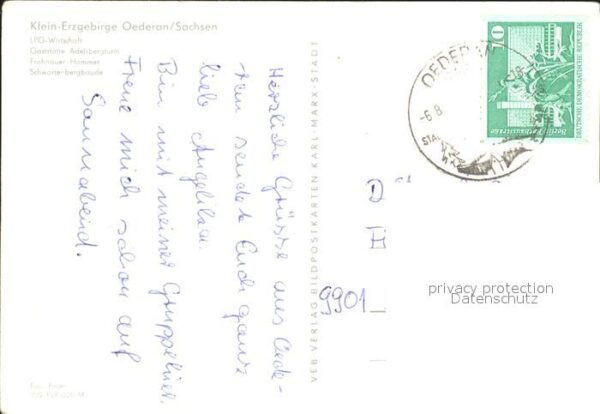 Klein-Erzgebirge Oederan/Sachsen
LPG-Wirtschaft
Gaststätte Adelsbergturm
Frohnauer Hammer
Schwartenbergbaude
Herzliche Grüsse aus Oede-
ran sendet Euch ganz
lieb Angelika.
Bin mit meiner Gruppe hier.
Freue mich schon auf
Sonnabend.
VEB VERLAG BILDPOSTKARTEN KARL-MARX-STADT
OEDERAN
-6.8
10
DEUTSCHE DEMOKRATISCHE REPUBLIK
Berlin, Rathausstrasse
D
H
9901
privacy protection
Datenschutz